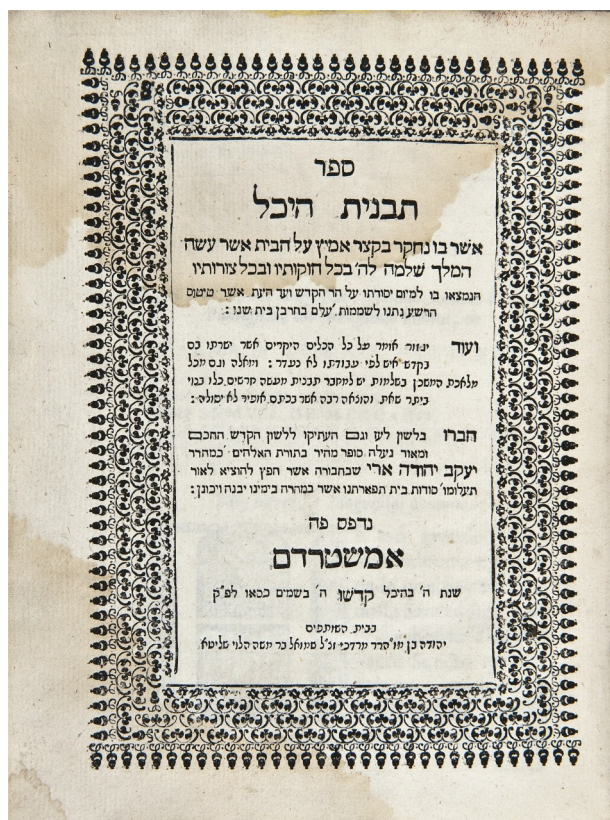 ספר
תבנית היכל
אשר בו נחקר בקצר אמיץ על הבית אשר עשה
המלך שלמה לה' בכל חוקותיו ובכל צורותיו
הנמצאו בו למיום יסודתו על הר הקדש ועד העת אשר טיטוס
הרשע נתנו לשממות עלם בחרבן בית שני :
ועוד יגזור אומר על כל הכלים היקרים אשר ישרתו בם
בקדש איש לפי עבודתו לא נעדר : ומאלה וגם מכל
מלאכת המשכן בשלמות יש למחבר תבנית מעשה חרשים כלו בנוי
ביתר שאת והוצאה רבה אשר בכתם אופיר לא יסולה :
חברו בלשון לעז וגם העתיקו ללשון הקדש החכם
ומאור נעלה סופר מהיר בתורת האלהים כמהרר
יעקב יהודה ארי שבחבורה אשר חפץ להוציא לאור
תעלומו' סודות בית תפארתנו אשר במהרה בימינו יבנה ויכונן :
נדפס פה
אמשטרדם
שנת ה' בהיכל קדשו ה' בשמים כסאו לפ"ק
בבית השותפים
יהודה בן מו"הרר מרדכי ז"ל שמואל בר משה הלוי שליטא